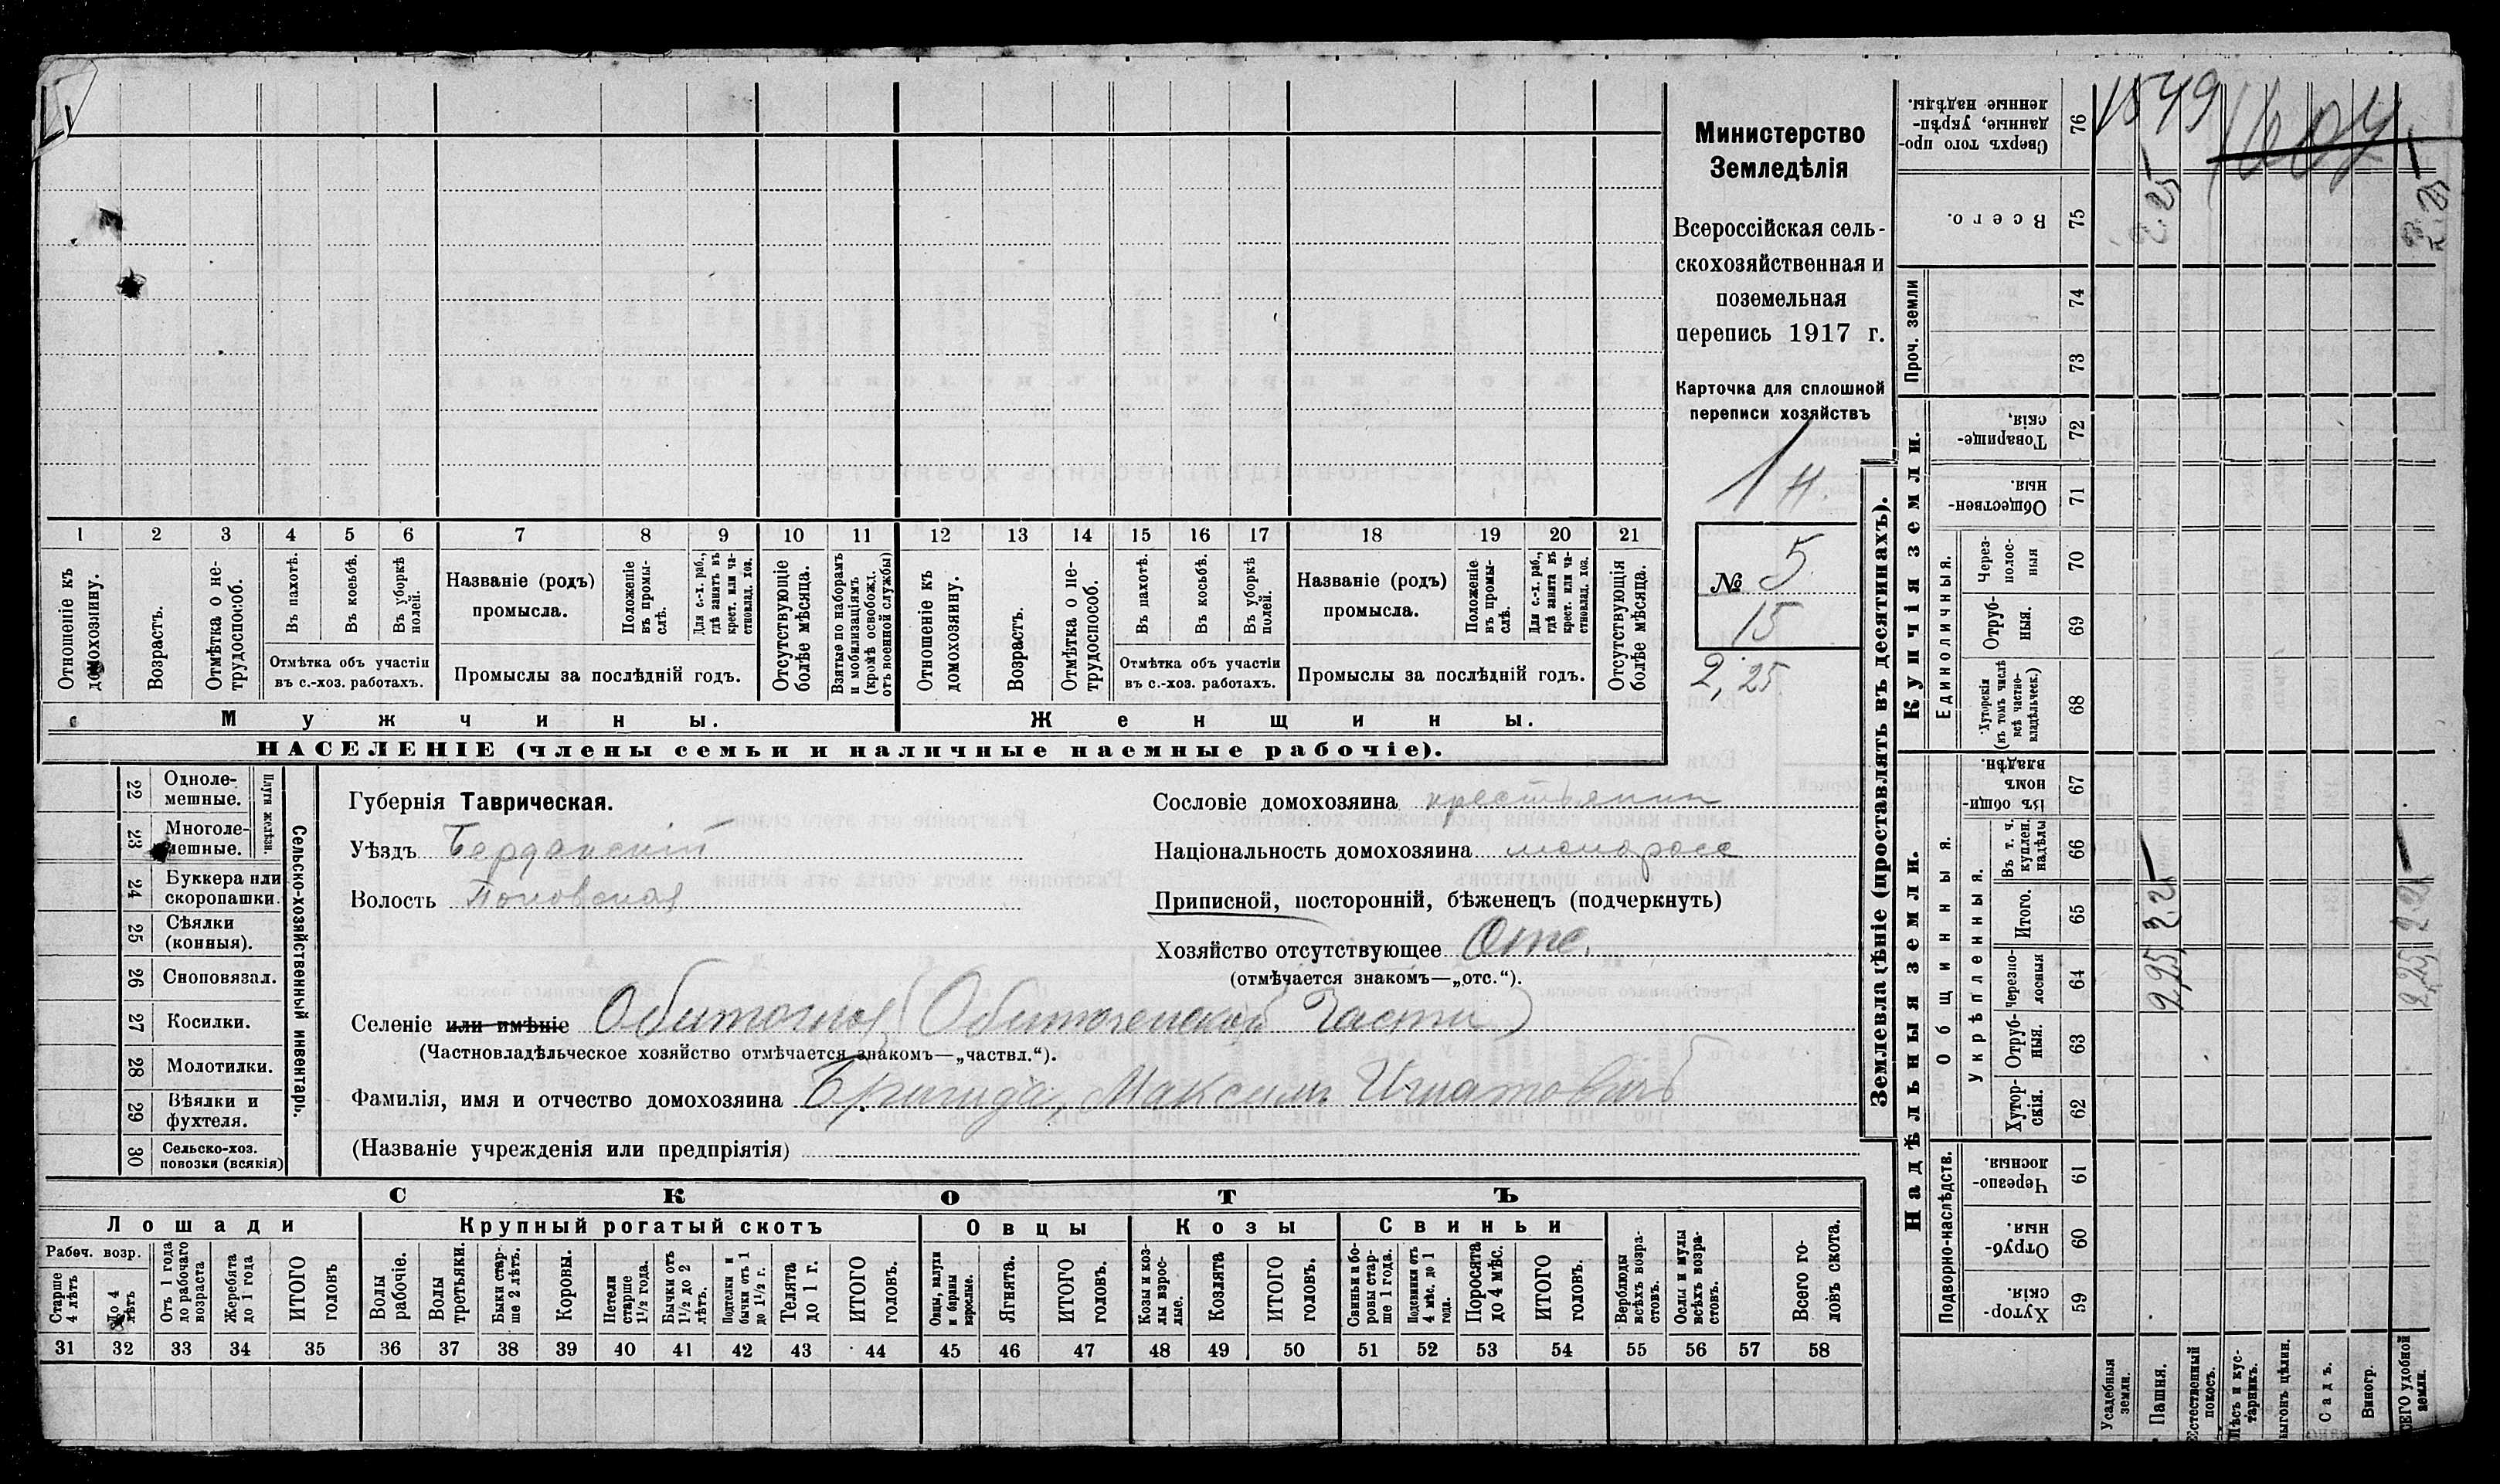 Министерство
Земледѣлія
Всероссійская сель-
скохозяйственная и
поземельная
перепись 1917 г.
Карточка для сплошной
переписи хозяйствъ
1 н.
№ 5
15
2,25
1 2 3 4 5 6 7 8 9 10 11 12 13 14 15 16 17 18 19 20 21
Отношеніе къ домохозяину.
Возрастъ.
Отмѣтка о не-трудоспособ.
Въ пахотѣ.
Въ косьбѣ.
Въ уборкѣ полей.
Названіе (родъ) промысла.
Положеніе въ промы-слѣ.
Для с.-х. раб., гдѣ занятъ въ крест. или ча-стновлад. хоз.
Отсутствующіе болѣе мѣсяца.
Взятые по наборамъ и мобилизаціямъ (кромѣ освобожд. отъ военной службы)
Отношеніе къ домохозяину.
Возрастъ.
Отмѣтка о не-трудоспособ.
Въ пахотѣ.
Въ косьбѣ.
Въ уборкѣ полей.
Названіе (родъ) промысла.
Положеніе въ промы-слѣ.
Для с.-х. раб., гдѣ занята въ крест. или ча-стновлад. хоз.
Отсутствующія болѣе мѣсяца.
Отмѣтка объ участіи въ с.-хоз. работахъ.
Промыслы за послѣдній годъ.
Отмѣтка объ участіи въ с.-хоз. работахъ.
Промыслы за послѣдній годъ.
Мужчины.
Женщины.
НАСЕЛЕНІЕ (члены семьи и наличные наемные рабочіе).
22 Одноле-мешные.
23 Многоле-мешные.
Плуги желѣзн.
24 Буккера или скоропашки.
25 Сѣялки (конныя).
26 Сноповязал.
27 Косилки.
28 Молотилки.
29 Вѣялки и фухтеля.
30 Сельско-хоз. повозки (всякія)
Сельско-хозяйственный инвентарь.
Губернія Таврическая.
Уѣздъ Бердянскій
Волость Поповская
Сословіе домохозяина крестьянин
Національность домохозяина малоросс
Приписной, посторонній, бѣженецъ (подчеркнуть)
Хозяйство отсутствующее Отс.
(отмѣчается знакомъ—„отс.“).
Селеніе или имѣніе Обиточная (Обиточенской части)
(Частновладѣльческое хозяйство отмѣчается знакомъ—„частвл.“).
Фамилія, имя и отчество домохозяина Максим Игнатовичъ
(Названіе учрежденія или предпріятія)
СКОТЪ
Лошади
Крупный рогатый скотъ
Овцы
Козы
Свиньи
Рабоч. возр.
Старше 4 лѣтъ
До 4 лѣтъ
Отъ 1 года до рабочаго возраста
Жеребята до 1 года
ИТОГО головъ
Волы рабочіе.
Волы третьяки.
Быки стар-ше 2 лѣтъ.
Коровы.
Нетели старше 1½ года.
Бычки отъ 1½ до 2 лѣтъ.
Подтелки и бычки отъ 1 до 1½ г.
Телята до 1 г.
ИТОГО головъ.
Овцы, валухи и бараны взрослые.
Ягнята.
ИТОГО головъ.
Козы и коз-лы взрос-лые.
Козлята
ИТОГО головъ.
Свиньи и бо-ровы стар-ше 1 года.
Подсвинки отъ 4 мѣс. до 1 года.
Поросята до 4 мѣс.
ИТОГО головъ.
Верблюды всѣхъ возра-стовъ.
Ослы и мулы всѣхъ возра-стовъ.
Всего го-ловъ скота.
31 32 33 34 35 36 37 38 39 40 41 42 43 44 45 46 47 48 49 50 51 52 53 54 55 56 57 58
Землевладѣніе (проставлять въ десятинахъ).
Купчія земли.
Надѣльныя земли.
76 Сверхъ того про-данные, укрѣп-ленные надѣлы.
75 Всего.
Проч. земли
74
73
72 Товарище-скія.
71 Обществен-ныя.
Единоличныя.
70 Через-полос-ныя
69 Отруб-ныя.
68 Хуторскія (въ томъ числѣ всѣ частно-владѣльческ.)
Общинныя.
67 Въ общин-номъ владѣн.
Укрѣпленныя.
66 Въ т. ч. куплен. надѣлы
65 Итого.
64 Черезпо-лосныя
63 Отруб-ныя.
62 Хутор-скія.
Подворно-наслѣдств.
61 Черезпо-лосныя.
60 Отруб-ныя.
59 Хутор-скія.
Усадебныя земли.
Пашня.
Естественный покосъ.
Лѣсъ и кус-тарникъ.
Выгонъ цѣлин.
Садъ.
Виногр.
ВСЕГО удобной земли.
1549
1604
2.25
2.25
2,25
2,25